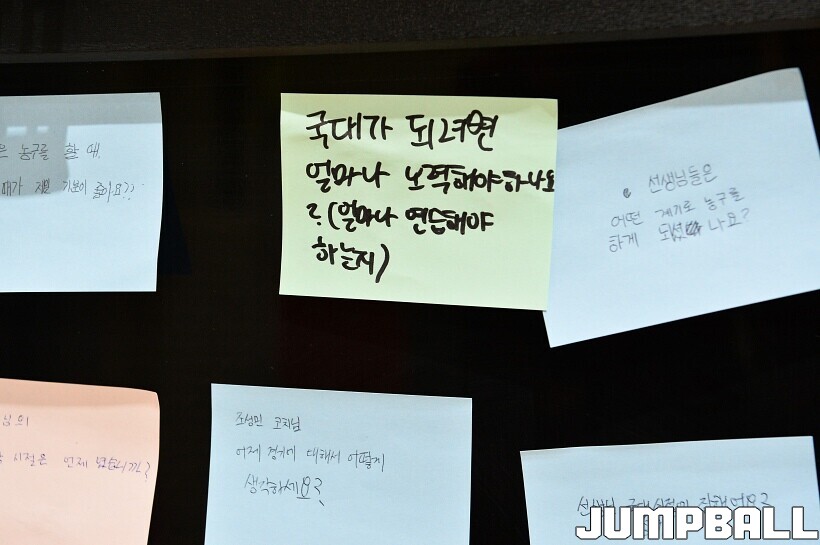 은 농구를 할 때,
때가 제일 기분이 좋아요??
국대가 되려면
얼마나 노력해야하나요
?(얼마나 연습해야
하는지)
선생님들은
어떤 계기로 농구를
하게 되셨나요?
님의
시절은 언제 였습니까?
조성민 코치님
어제 경기에 대해서 어떻게
생각하세요?
선생님
JUMPBALL